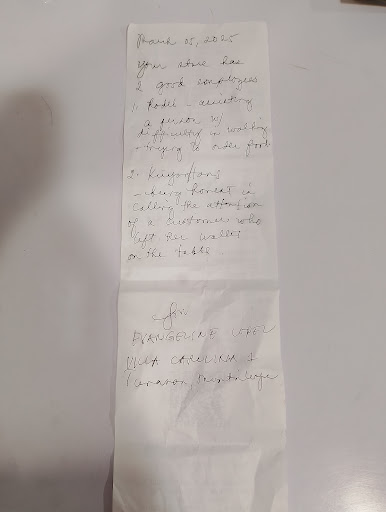 March 05, 2025
Your store has
2 good employees
1. Rodel - assisting
a person w/
difficulty in walking
- trying to order food
2.
- being honest in
calling the attention
of a customer who
left her wallet
on the table
EVANGELINE
VILLA CAROLINA 1